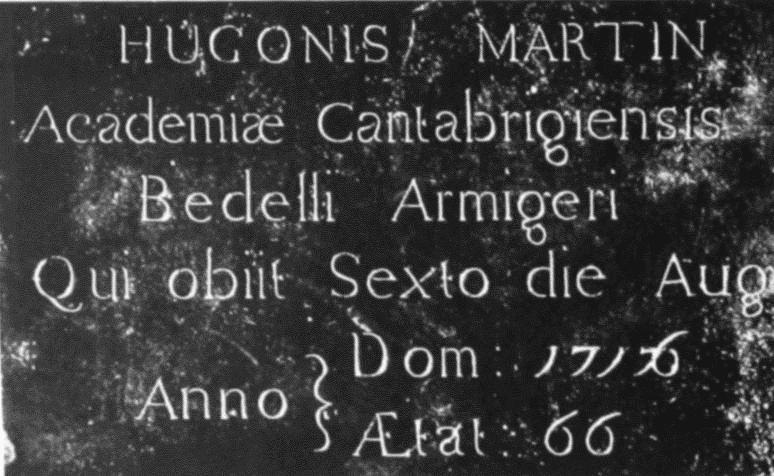 HUGONIS MARTIN
Academiæ Cantabrigiensis
Bedelli Armigeri
Qui obiit Sexto die Aug
Anno { Dom: 1716
Ætat: 66